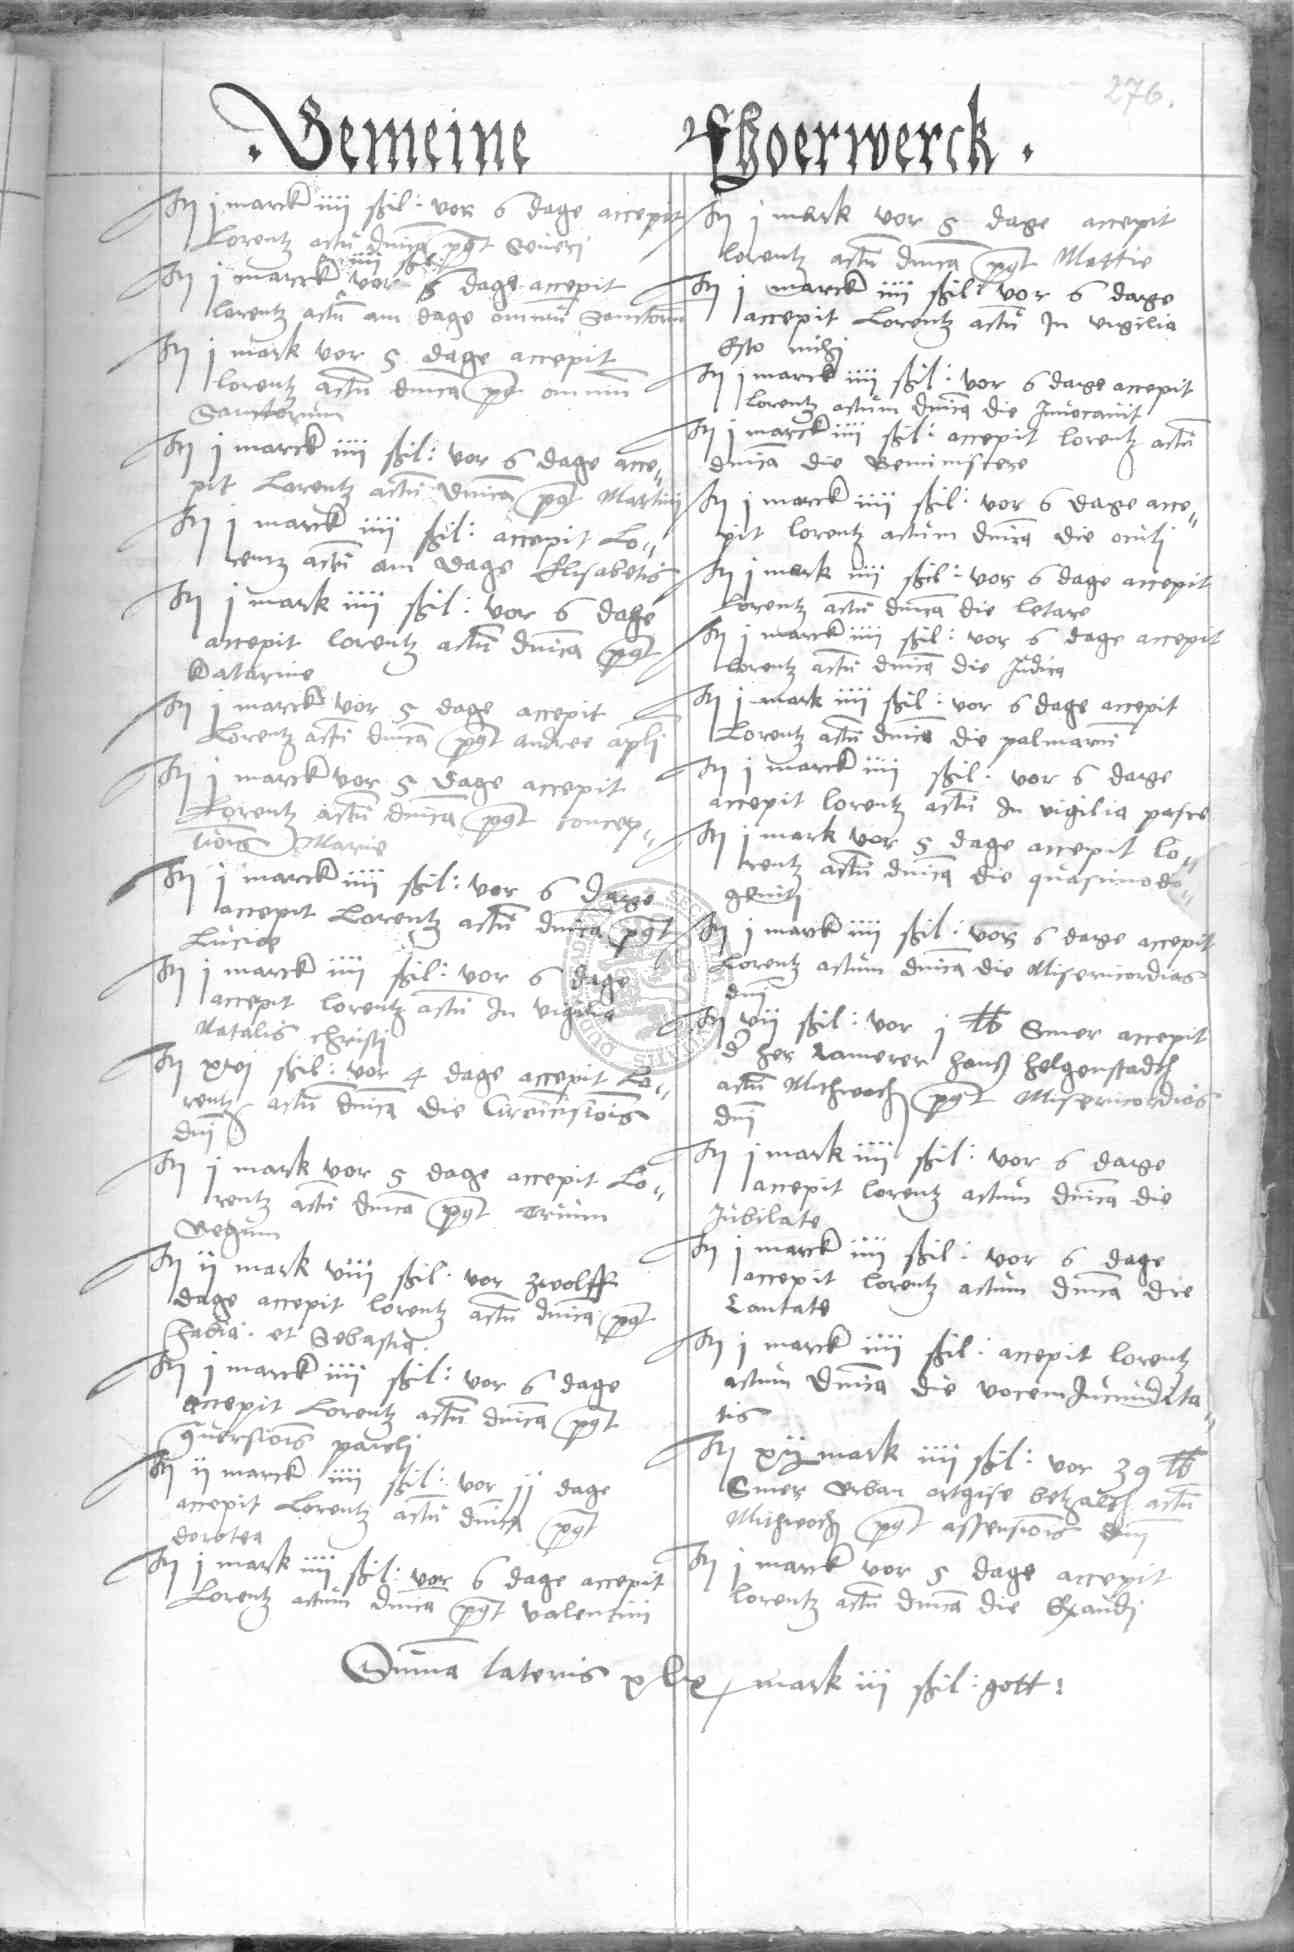 276.
· Gemeine Fhoerwerck ·
It j marck iiii ßil: vor 6 dage accepit
Lorentz actū dnīca pqt Seueri
iiii ßil:
It j marck vor 5 dage accepit
lorentz actū am dage omniū Sanctorum
It j mark vor 5 dage accepit
lorentz actū dnīca pqt omniū
Sanctorum
It j marck iiii ßil: vor 6 dage acce„
pit Lorentz actū dnīca pqt Martinj
It j marck iiii ßil: accepit Lo„
rentz actū am dage Elisabetis
It j mark iiii ßil: vor 6 dage
accepit lorentz actū dnīca pqt
Katarine
It j marck vor 5 dage accepit
Lorentz actū dnīca pqt andree apli
It j marck vor 5 dage accepit
Lorentz actū dnīca pqt concep„
tiōis Marie
It j marck iiii ßil: vor 6 dage
accepit Lorentz actū dnīca pqt
Lucie
It j marck iiii ßil: vor 6 dage
accepit lorentz actū In vigilia
Natalis christi
It xvj ßil: vor 4 dage accepit Lo„
rentz actū dnīca die Circūcisiōis
dnī
It j mark vor 5 dage accepit Lo„
rentz actū dnīca pqt Trium
Regum
It ij mark viii ßil: vor zwolff
dage accepit lorentz actū dnīca pqt
Fabia: et Sebastia.
It j marck iiii ßil: vor 6 dage
accepit Lorentz actū dnīca pqt
9uersiōis paulj
It ij marck iiii ßil: vor jj dage
accepit Lorentz actū dnīca pqt
dorotea
It j mark iiii ßil: vor 6 dage accepit
Lorentz actum dnīca pqt valentini
It j mark vor 5 dage accepit
lorentz actū dnīca pqt Mattie
It j marck iiii ßil: vor 6 dage
accepit Lorentz actū In vigilia
Esto mihj
It j marck iiii ßil: vor 6 dage accepit
Lorentz actum dnīca die Inuocauit
It j marck iiii ßil: accepit lorentz actū
dnīca die Reminiscere
It j marck iiii ßil: vor 6 dage acce„
pit lorentz actum dnīca die oculj
It j mark iiii ßil: vor 6 dage accepit
Lorentz actū dnīca die letare
It j marck iiii ßil: vor 6 dage accepit
Lorentz actū dnīca die Judica
It j mark iiii ßil: vor 6 dage accepit
Lorentz actū dnīca die palmarū
It j marck iiii ßil: vor 6 dage
accepit lorentz actū In vigilia pasce
It j mark vor 5 dage accepit lo„
rentz actū dnīca die quasimodo„
genitj
It j marck iiii ßil: vor 6 dage accepit
Lorentz actum dnīca die Misericordias
dnī
It vii ßil: vor j lb Smer accepit
d her kamerer hanß helgenstadth
actū Mithwoch pqt Misericordias
dnī
It j mark iiii ßil: vor 6 dage
accepit lorentz actum dnīca die
Jubilate
It j marck iiii ßil: vor 6 dage
accepit lorentz actum dnīca die
Cantate
It j marck iiii ßil: accepit lorentz
actum dnīca die vocem Jucundita„
tis
It xij mark iiii ßil: vor 39 lb
Smer Vrban betzalth actū
Mithwoch pqt assensiōis dnī
It j marck vor 5 dage accepit
lorentz actū dnīca die Exaudj
Suma lateris xlix mark iii ßil: gott: